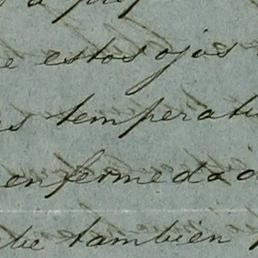 e estos ojos
s temperatu
enfermedad
be tambien